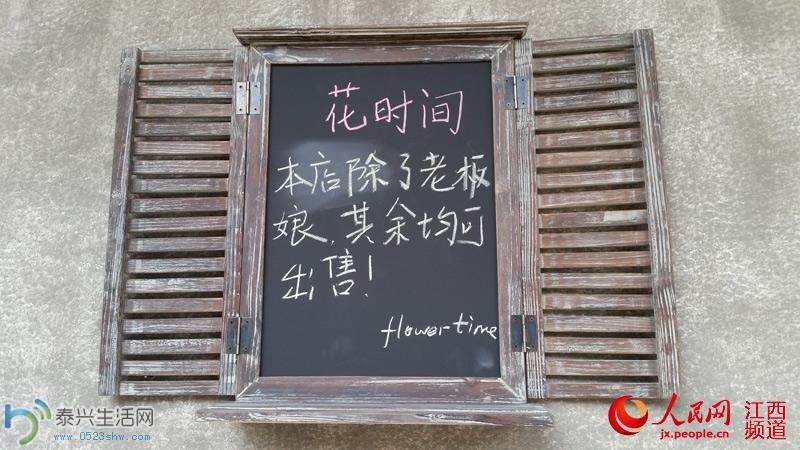 花时间
本店除了老板
娘,其余均可
出售!
flower time
泰兴生活网
www.0523shw.com
人民网 江西
频道
jx.people.cn